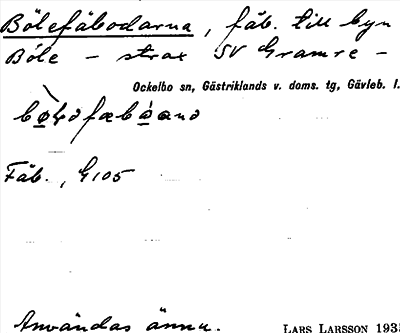 Bölefäbodarna, fäb. till byn
Böle – strax SV Gramre –
Ockelbo sn, Gästriklands v. doms. tg, Gävleb. l.
Fäb., G105
Användas ännu.
LARS LARSSON 193